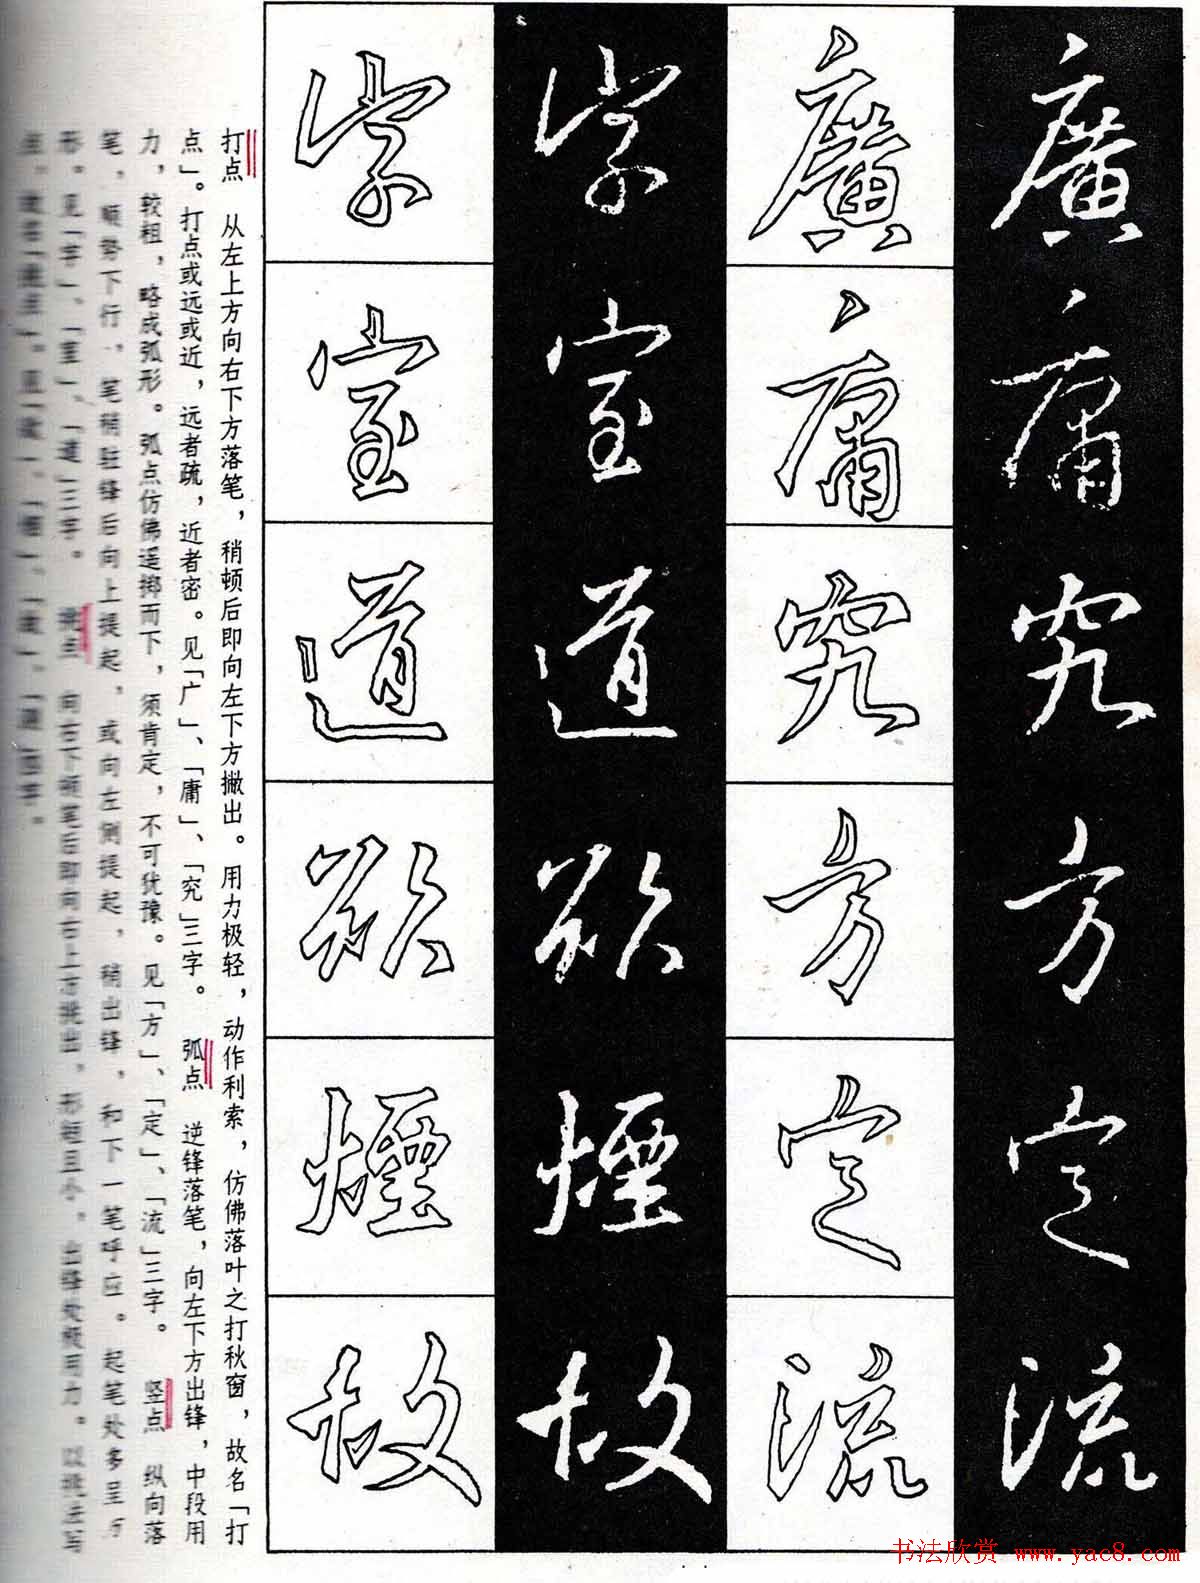 廣 廣 字 字
庸 庸 室 室
究 究 道 道
方 方 欲 欲
定 定 煙 煙
流 流 故 故
打点 从左上方向右下方落笔，稍顿后即向左下方撇出。用力极轻，动作利索，仿佛落叶之打秋窗，故名「打
点」。打点或远或近，远者疏，近者密。见「广」、「庸」、「究」三字。 弧点 逆锋落笔，向左下方出锋，中段用
力，较粗，略成弧形。弧点仿佛遥掷而下，须肯定，不可犹豫。见「方」、「定」、「流」三字。 竖点 纵向落
笔，顺势下行，笔稍驻锋后向上提起，或向左侧提起，稍出锋，和下一笔呼应。起笔处多呈方
形。见「字」、「室」、「道」三字。 挑点 向右下顿笔后即向右上方挑出，形短且小。出锋处须用力。以挑法写
点，故名「挑点」。见「欲」、
书法欣赏 www.yac8.com